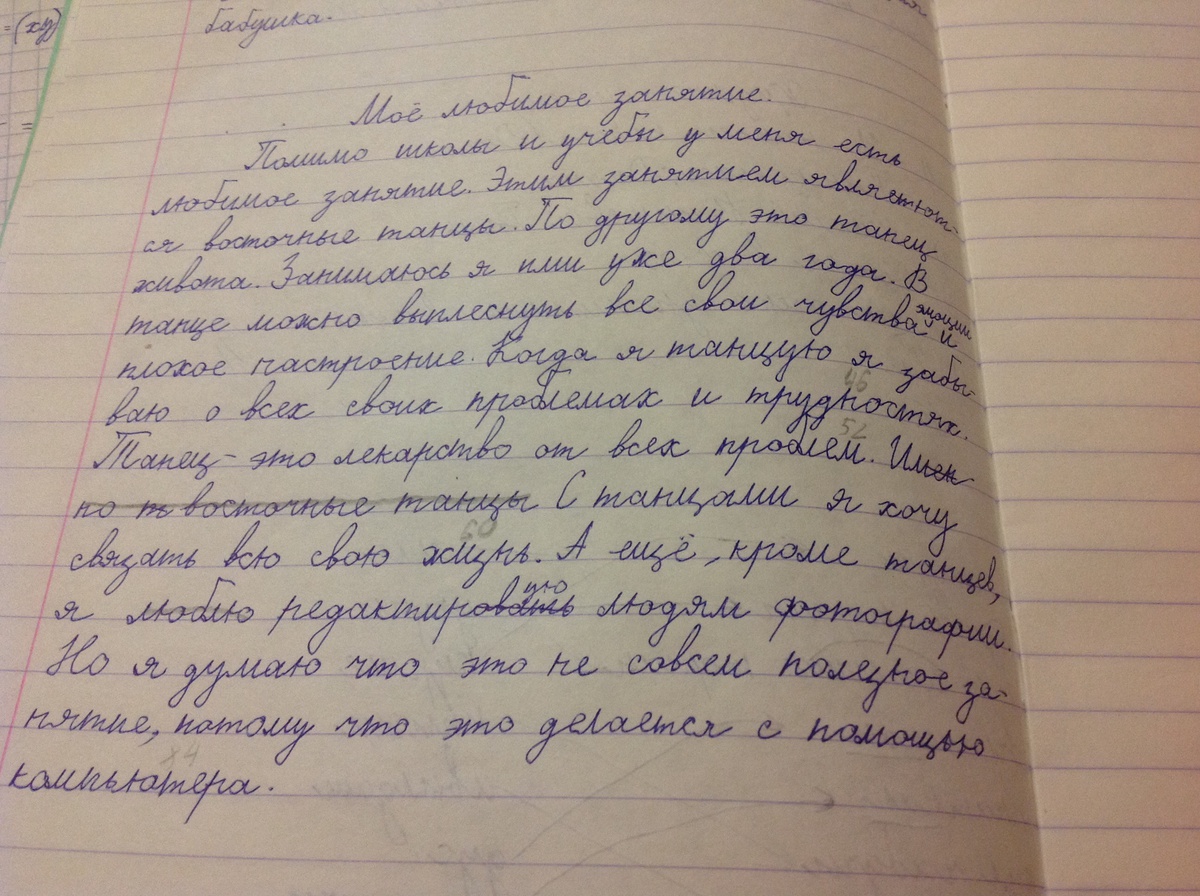 =(xy)
=
бабушка.
Моё любимое занятие.
Помимо школы и учебы у меня есть
любимое занятие. Этим занятием являетют-
ся восточные танцы. По другому это танец
живота. Занимаюсь я ими уже два года. В
танце можно выплеснуть все свои чувства эмоции и
плохое настроение. Когда я танцую я забы-
ваю о всех своих проблемах и трудностях.
Танец - это лекарство от всех проблем. Имен-
но т восточные танцы С танцами я хочу
связать всю свою жизнь. А ещё, кроме танцев,
я люблю редактировать ую людям фотографии.
Но я думаю что это не совсем полезное за-
нятие, потому что это делается с помощью
компьютера.
46
52
60
84